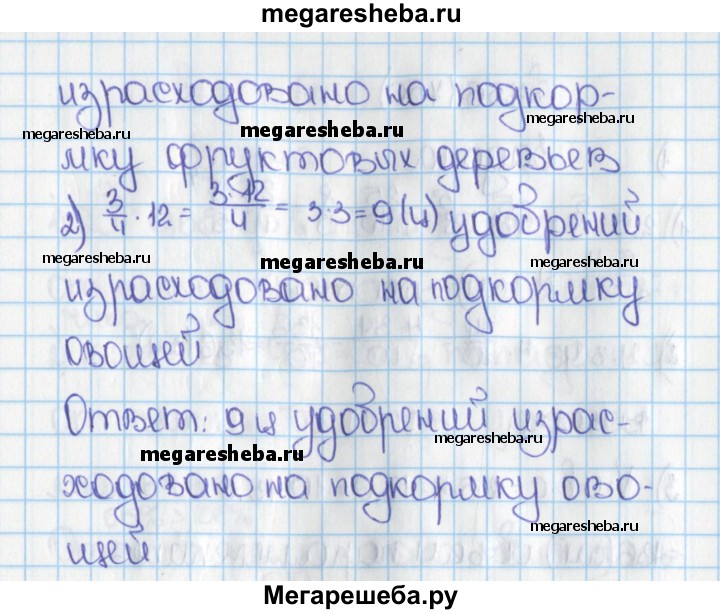 megaresheba.ru
израсходовано на подкор-
megaresheba.ru megaresheba.ru megaresheba.ru
мку фруктовых деревьев
2) 3/4 · 12 = 3·12/4 = 3·3=9(ц) удобрений
megaresheba.ru megaresheba.ru megaresheba.ru
израсходовано на подкормку
овощей
Ответ: 9 ц удобрений израс-
megaresheba.ru megaresheba.ru
ходовано на подкормку ово-
megaresheba.ru
щей
Мегарешеба.ру